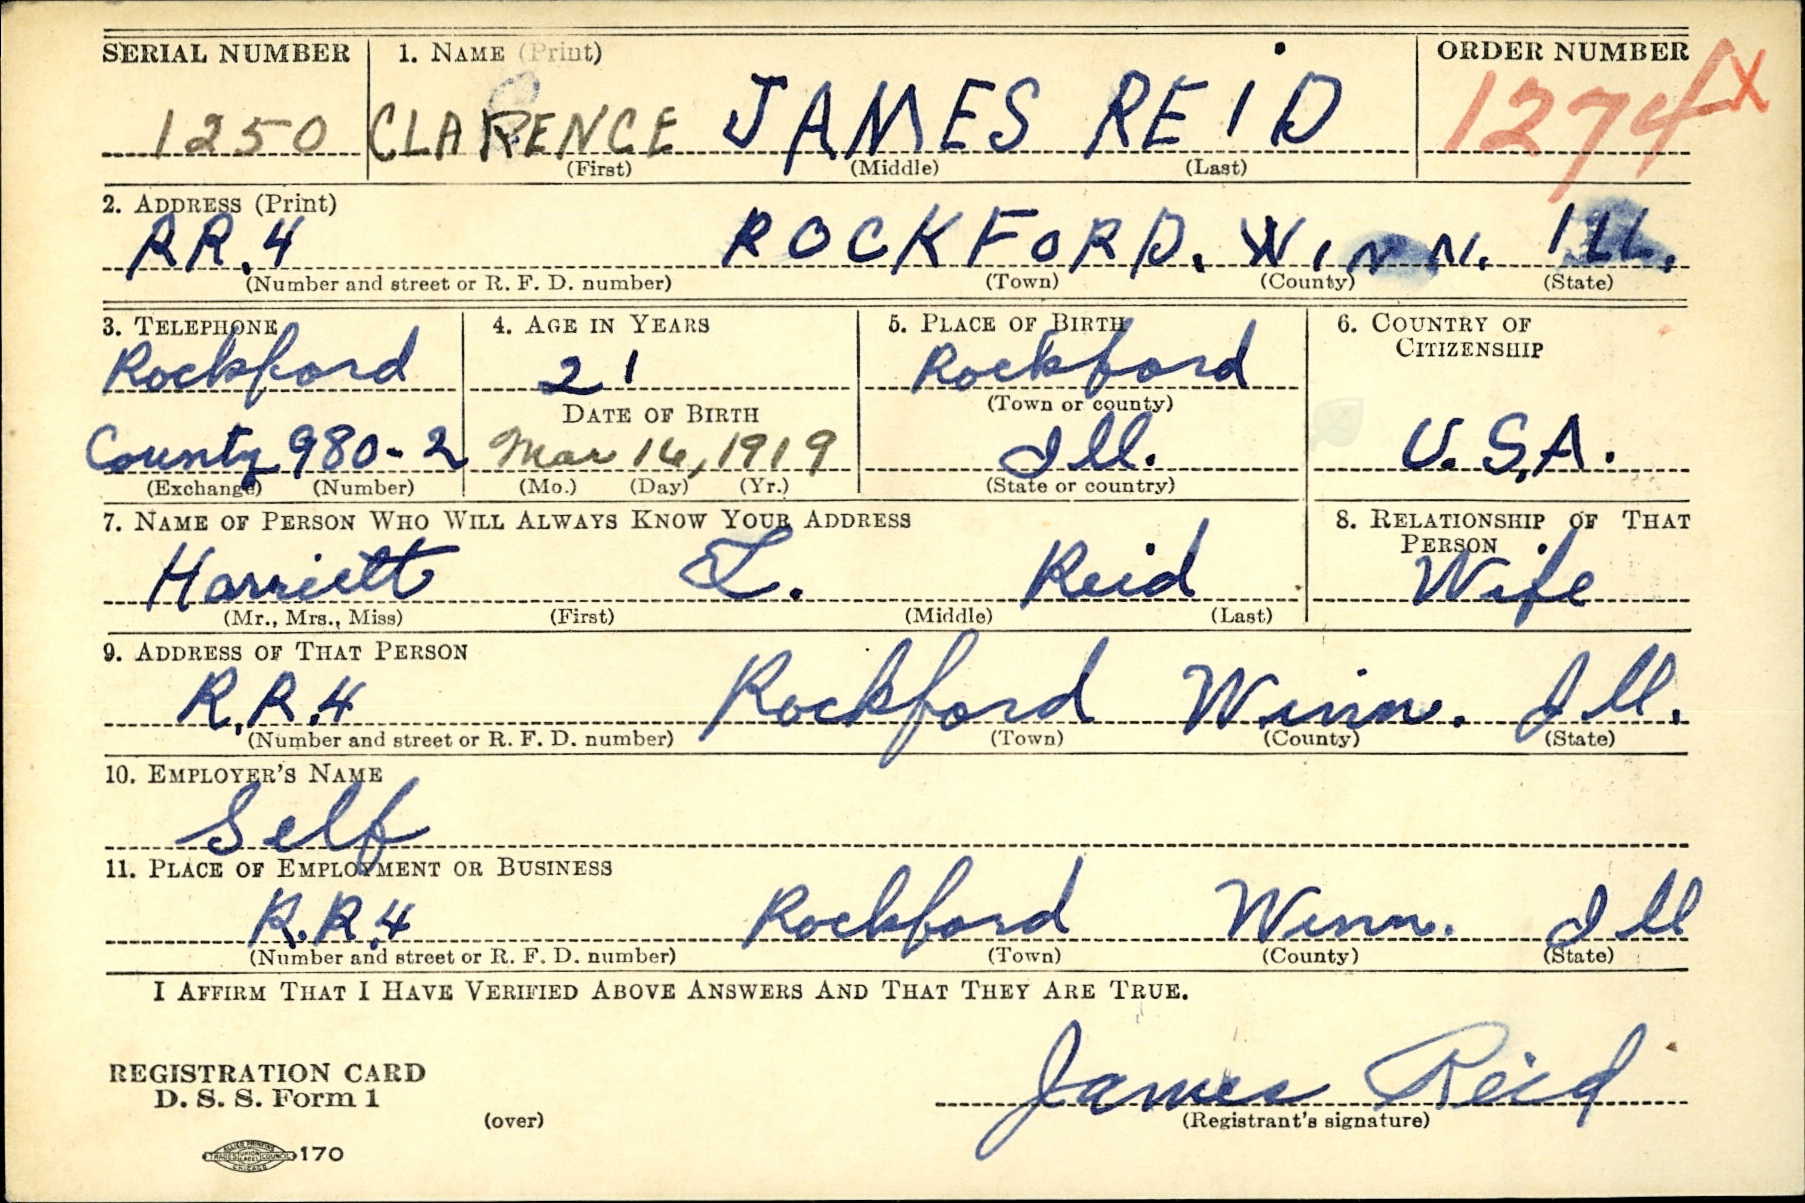 SERIAL NUMBER 1. NAME (Print) ORDER NUMBER
1250 CLARENCE JAMES REID 1274 X
(First) (Middle) (Last)
2. ADDRESS (Print)
RR.4 ROCKFORD. WINN. ILL.
(Number and street or R. F. D. number) (Town) (County) (State)
3. TELEPHONE 4. AGE IN YEARS 5. PLACE OF BIRTH 6. COUNTRY OF
CITIZENSHIP
Rockford 21 Rockford
DATE OF BIRTH (Town or county)
County 980-2 Mar 16, 1919 Ill. U.S.A.
(Exchange) (Number) (Mo.) (Day) (Yr.) (State or country)
7. NAME OF PERSON WHO WILL ALWAYS KNOW YOUR ADDRESS 8. RELATIONSHIP OF THAT
PERSON
Harriett L. Reid Wife
(Mr., Mrs., Miss) (First) (Middle) (Last)
9. ADDRESS OF THAT PERSON
R.R.4 Rockford Winn. Ill.
(Number and street or R. F. D. number) (Town) (County) (State)
10. EMPLOYER'S NAME
Self
11. PLACE OF EMPLOYMENT OR BUSINESS
R.R.4 Rockford Winn. Ill
(Number and street or R. F. D. number) (Town) (County) (State)
I AFFIRM THAT I HAVE VERIFIED ABOVE ANSWERS AND THAT THEY ARE TRUE.
James Reid
REGISTRATION CARD
D. S. S. Form 1
(over) (Registrant's signature)
170